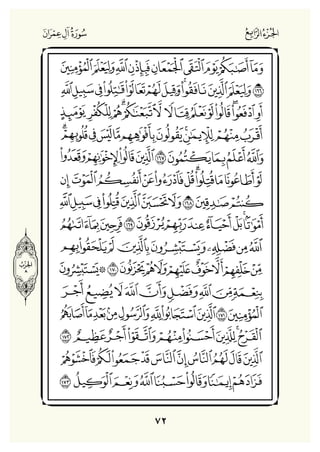 الجُزْءُ الرَّابِعُ سُورَةُ آلِ عِمْرَانَ
وَمَآ أَصَٰبَكُمْ يَوْمَ ٱلْتَقَى ٱلْجَمْعَانِ فَبِإِذْنِ ٱللَّهِ وَلِيَعْلَمَ ٱلْمُؤْمِنِينَ
١٦٦ وَلِيَعْلَمَ ٱلَّذِينَ نَافَقُوا۟ وَقِيلَ لَهُمْ تَعَالَوْا۟ قَٰتِلُوا۟ فِى سَبِيلِ ٱللَّهِ
أَوِ ٱدْفَعُوا۟ قَالُوا۟ لَوْ نَعْلَمُ قِتَالًا لَّٱتَّبَعْنَٰكُمْ هُمْ لِلْكُفْرِ يَوْمَئِذٍ
أَقْرَبُ مِنْهُمْ لِلْإِيمَٰنِ يَقُولُونَ بِأَفْوَٰهِهِم مَّا لَيْسَ فِى قُلُوبِهِمْ
وَٱللَّهُ أَعْلَمُ بِمَا يَكْتُمُونَ ١٦٧ ٱلَّذِينَ قَالُوا۟ لِإِخْوَٰنِهِمْ وَقَعَدُوا۟
لَوْ أَطَاعُونَا مَا قُتِلُوا۟ قُلْ فَٱدْرَءُوا۟ عَنْ أَنفُسِكُمُ ٱلْمَوْتَ إِن
كُنتُمْ صَٰدِقِينَ ١٦٨ وَلَا تَحْسَبَنَّ ٱلَّذِينَ قُتِلُوا۟ فِى سَبِيلِ ٱللَّهِ
أَمْوَٰتًۢا بَلْ أَحْيَآءٌ عِندَ رَبِّهِمْ يُرْزَقُونَ ١٦٩ فَرِحِينَ بِمَآ ءَاتَىٰهُمُ
ٱللَّهُ مِن فَضْلِهِۦ وَيَسْتَبْشِرُونَ بِٱلَّذِينَ لَمْ يَلْحَقُوا۟ بِهِم
مِّنْ خَلْفِهِمْ أَلَّا خَوْفٌ عَلَيْهِمْ وَلَا هُمْ يَحْزَنُونَ ١٧٠ ۞ يَسْتَبْشِرُونَ
بِنِعْمَةٍ مِّنَ ٱللَّهِ وَفَضْلٍ وَأَنَّ ٱللَّهَ لَا يُضِيعُ أَجْرَ
ٱلْمُؤْمِنِينَ ١٧١ ٱلَّذِينَ ٱسْتَجَابُوا۟ لِلَّهِ وَٱلرَّسُولِ مِنۢ بَعْدِ مَآ أَصَابَهُمُ
ٱلْقَرْحُ لِلَّذِينَ أَحْسَنُوا۟ مِنْهُمْ وَٱتَّقَوْا۟ أَجْرٌ عَظِيمٌ ١٧٢
ٱلَّذِينَ قَالَ لَهُمُ ٱلنَّاسُ إِنَّ ٱلنَّاسَ قَدْ جَمَعُوا۟ لَكُمْ فَٱخْشَوْهُمْ
فَزَادَهُمْ إِيمَٰنًا وَقَالُوا۟ حَسْبُنَا ٱللَّهُ وَنِعْمَ ٱلْوَكِيلُ ١٧٣
الحزب
٨
٧٢